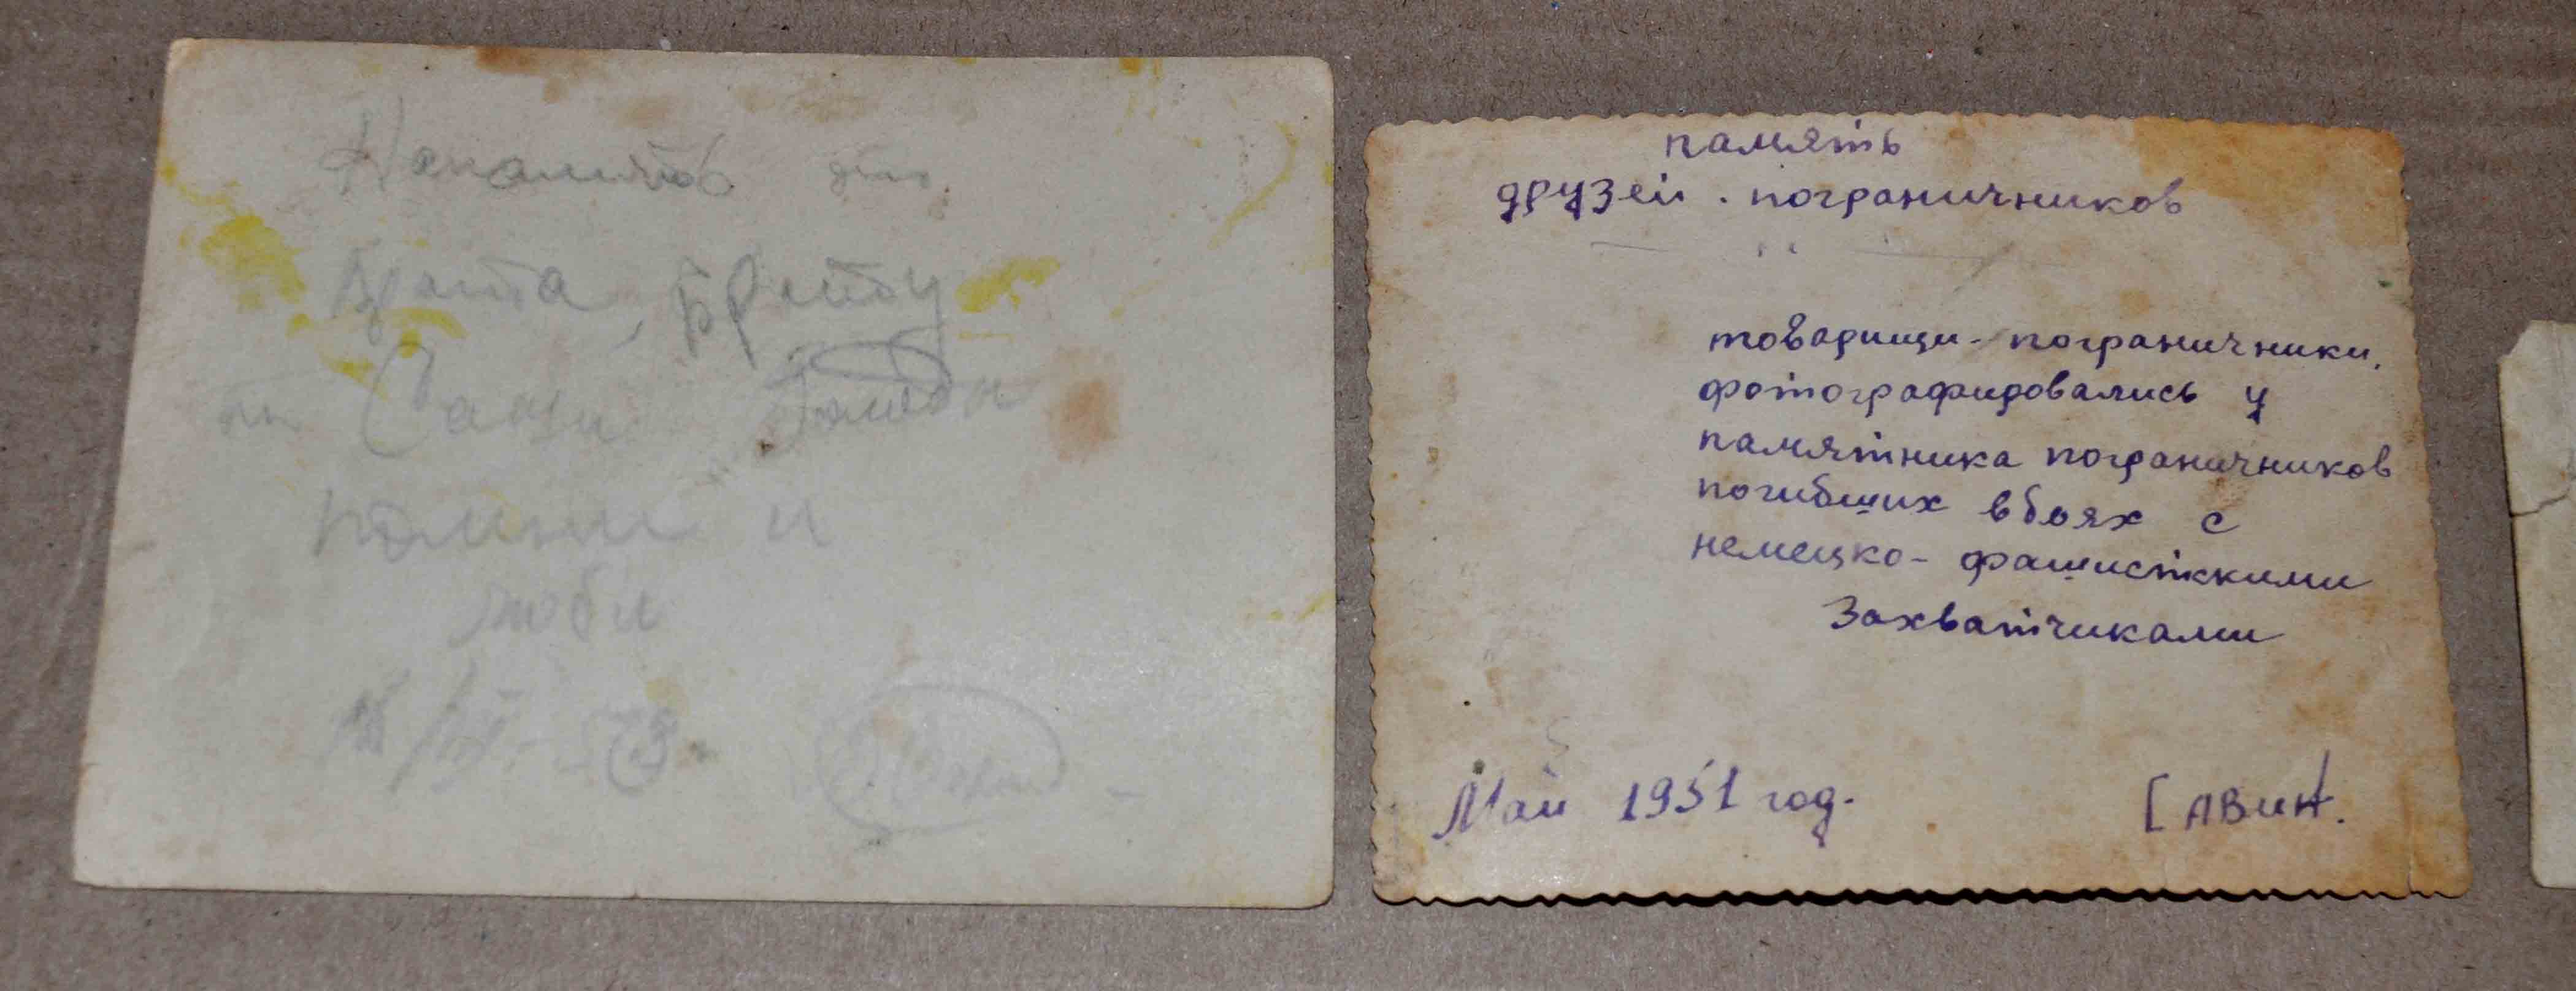 На память
брата, брату
от Саши
помни и
люби
память
друзей . пограничников
товарищи - пограничники,
фотографировались у
памятника пограничников
погибших в боях с
немецко - фашисткими
Захватчиками
Май 1951 год.
[АВИН.